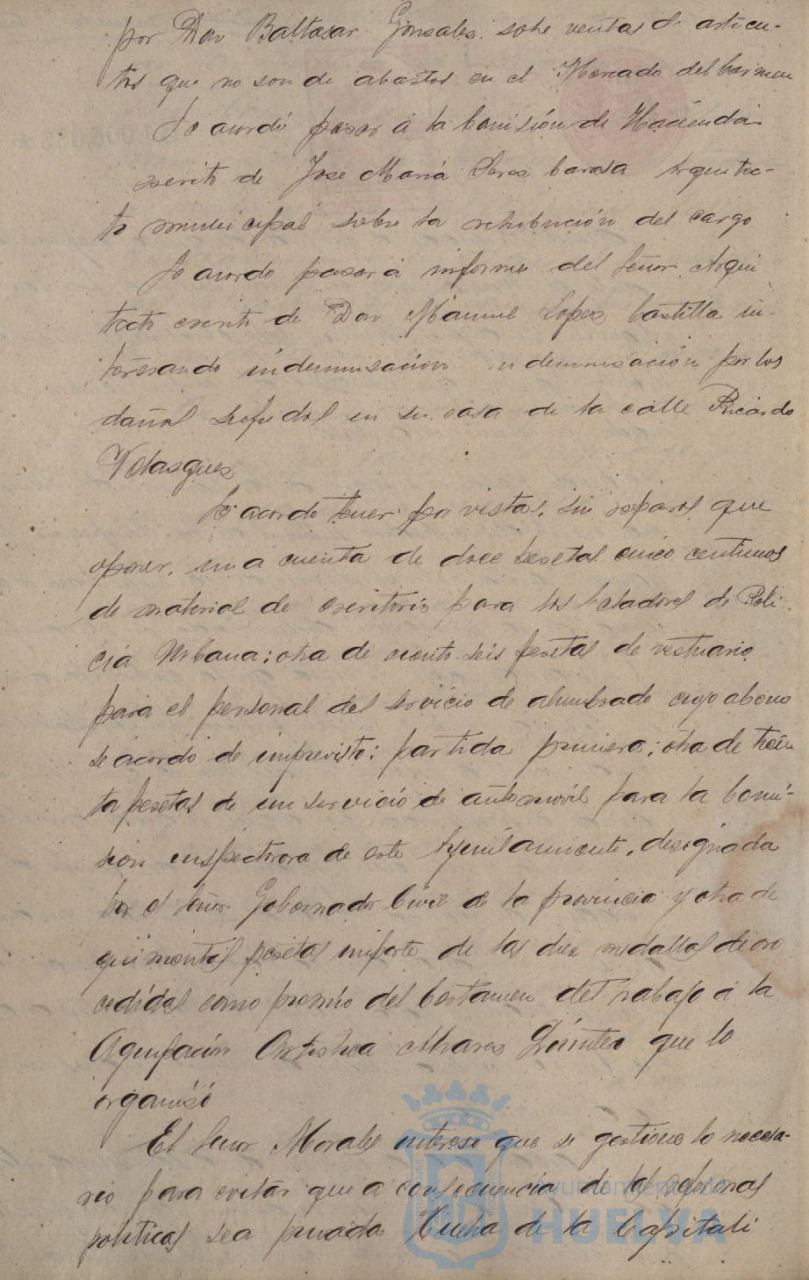 por Don Baltasar Gonsales. sobre ventas de articu-
los que no son de abastos en el Mercado del Carmen
Se acordó pasar á la Comisión de Hacienda
escrito de Jose María Peres Carasa Arquitec-
to municipal sobre la retribución del cargo
Se acordo pasar á informe del Señor Arqui
tecto escrito de Don Manuel Lopes Castilla in-
teresando indemnisacion indemnisación por los
daños sufridos en su casa de la calle Ricardo
Velasques
Se acordo tener por vistas, sin reparos que
oponer, una cuenta de doce pesetas cinco centimos
de material de escritorio para los Celadores de Poli
cia Urbana; otra de ciento seis pesetas de vestuario
para el personal del servicio de alumbrado cuyo abono
se acordo de imprevisto: partida primera; otra de trein
ta pesetas de un servicio de automovil para la Comi-
sion inspectora de este Ayuntamiento, designada
por el Señor Gobernador Civil de la provincia y otra de
quinientas pesetas importe de las dies medallas de oro
cedidas como premio del Certamen del Trabajo á la
Agrupación Artistica Alvares Quintero que lo
organisó
El Señor Morales intereso que se gestione lo necesa-
rio para evitar que a consecuencia de las reformas
politicas sea privada Huelva de la Capitali
Ayuntamiento de
HUELVA